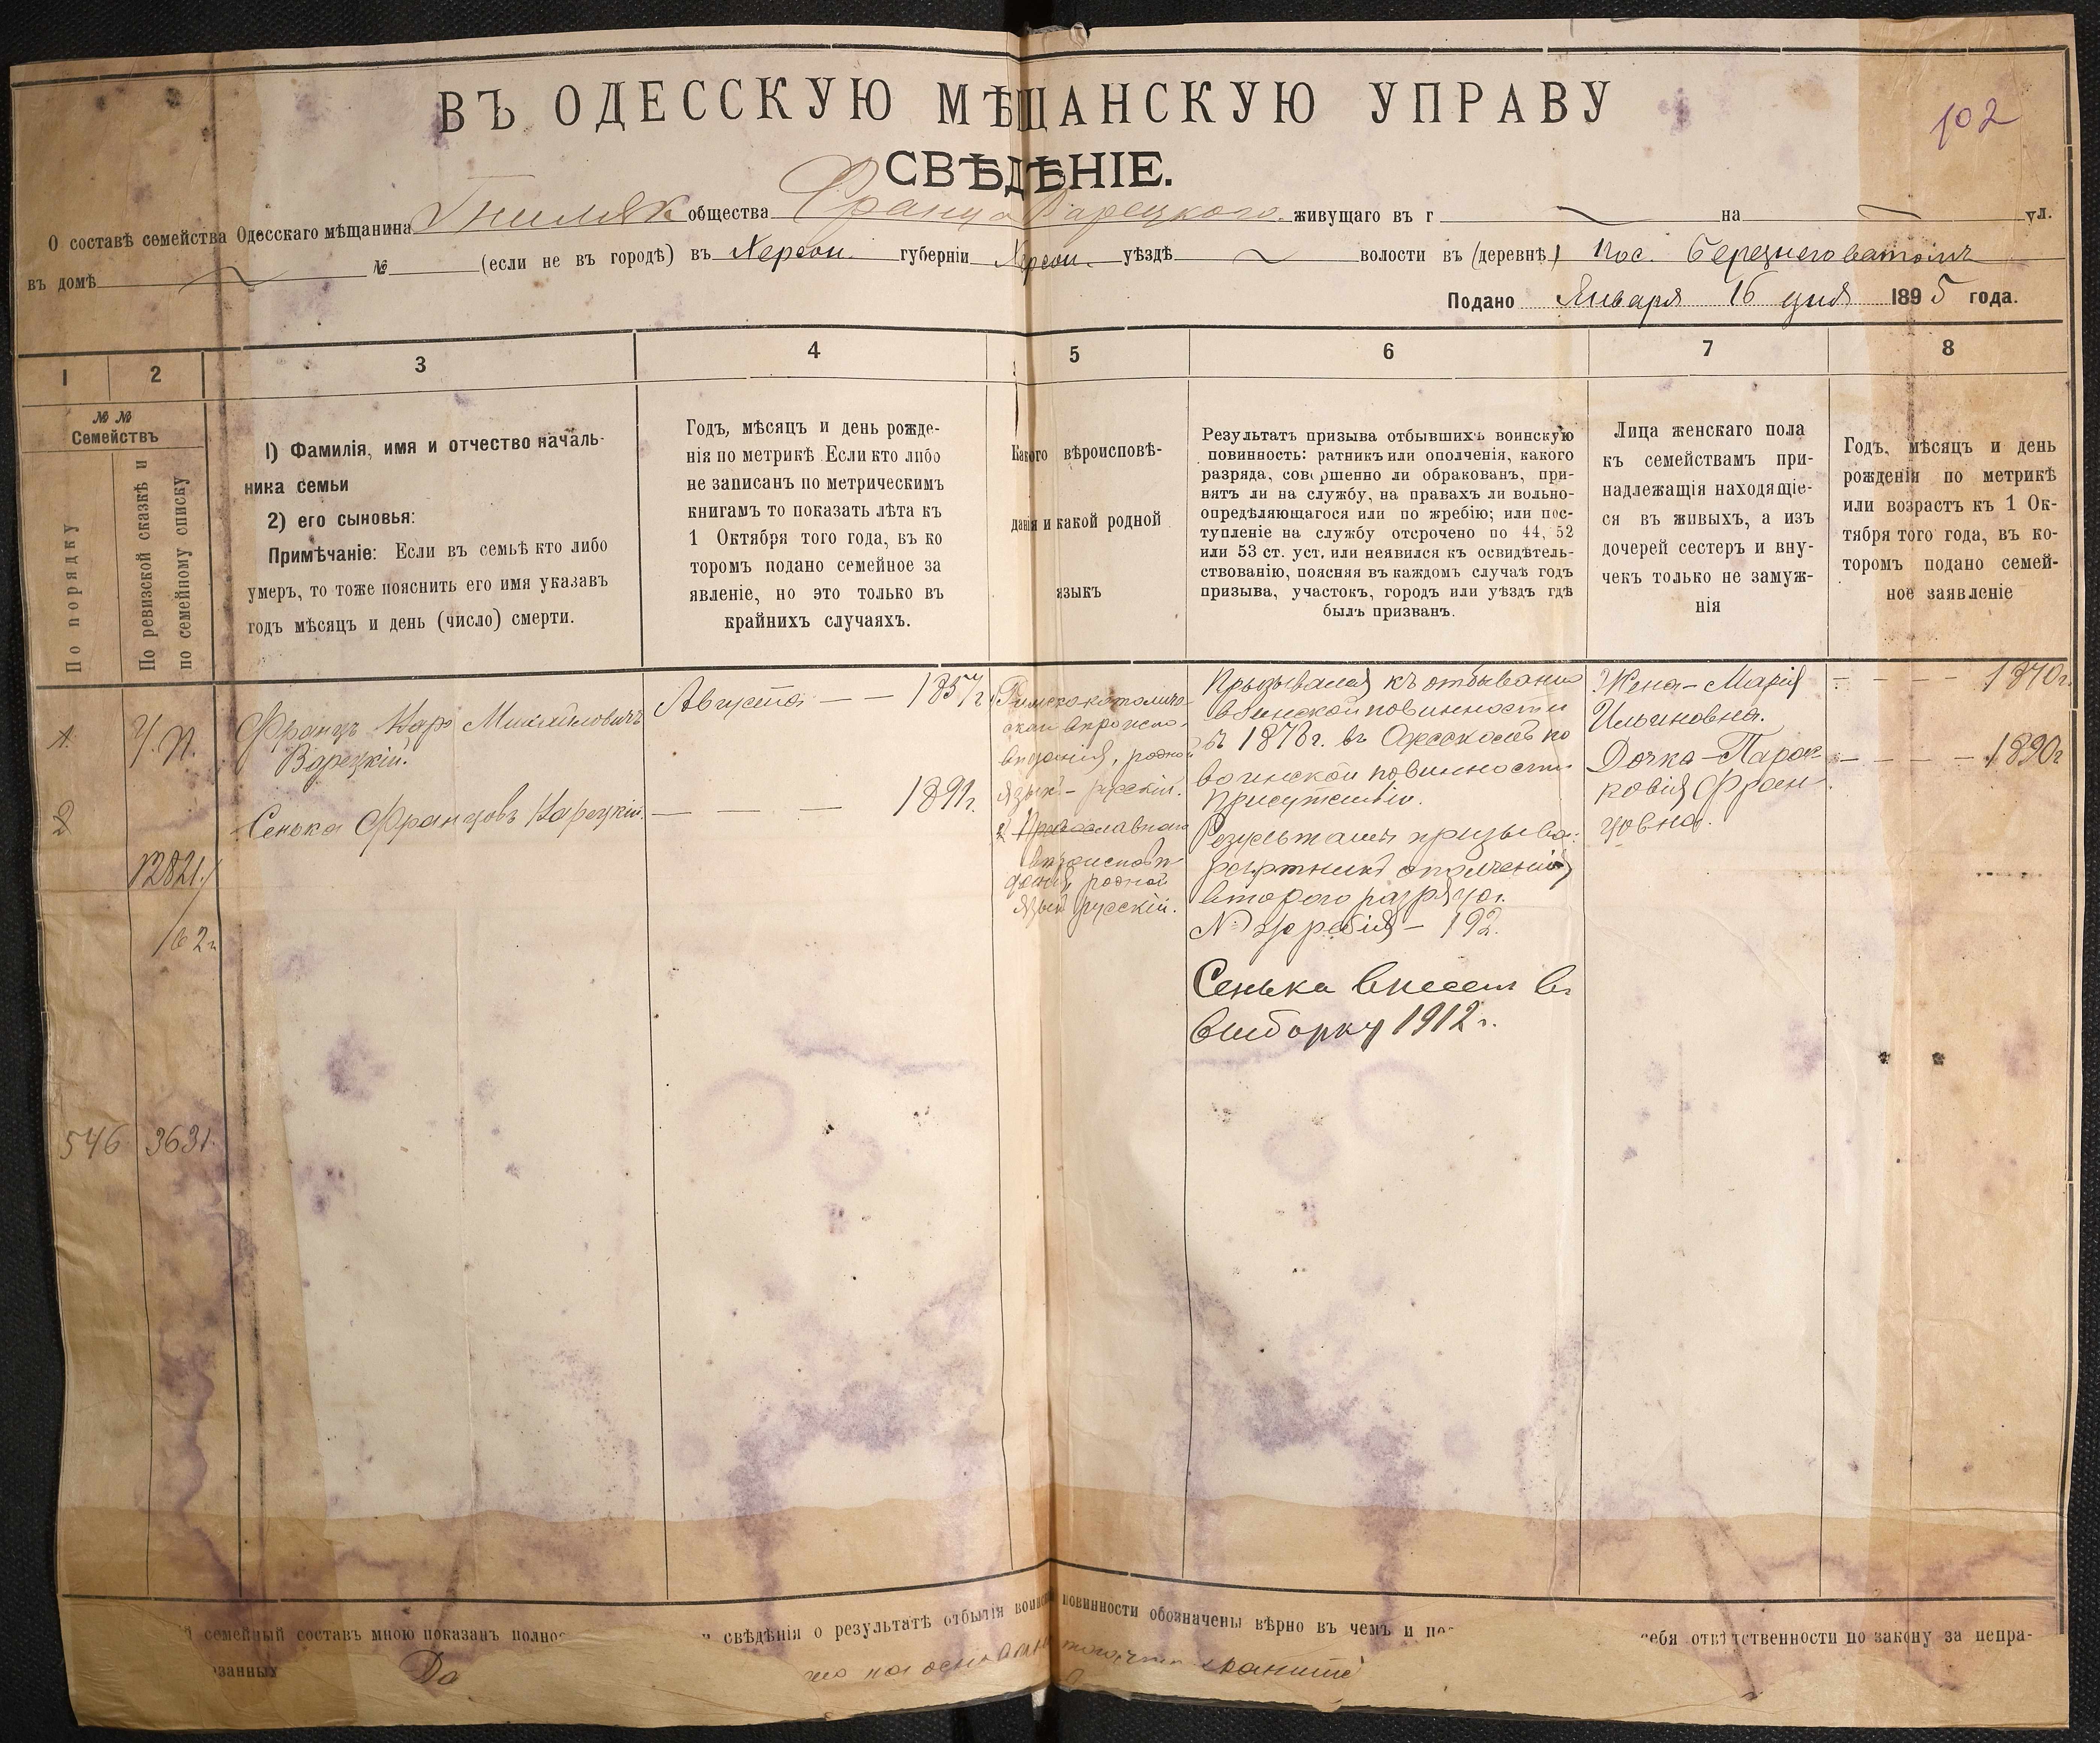 ВЪ ОДЕССКУЮ МѢЩАНСКУЮ УПРАВУ
102
СВѢДѢНІЕ.
О составѣ семейства Одесскаго мѣщанина Гниляк общества Франца Варецкого живущаго въ г на ул.
въ домѣ № (если не въ городѣ) въ Херсон. губерніи Херсон. уѣздѣ волости въ (деревнѣ) Пос. Березнеговатомъ
Подано Января 16 дня 1895 года.
1 2 3 4 5 6 7 8
№ №
Семействъ
По порядку
По ревизской сказкѣ и
по семейному списку
1) Фамилія, имя и отчество началь-
ника семьи
2) его сыновья:
Примѣчаніе: Если въ семьѣ кто либо
умеръ, то тоже пояснить его имя указавъ
годъ мѣсяцъ и день (число) смерти.
Годъ, мѣсяцъ и день рожде-
нія по метрикѣ Если кто либо
не записанъ по метрическимъ
книгамъ то показать лѣта къ
1 Октября того года, въ ко
торомъ подано семейное за
явленіе, но это только въ
крайнихъ случаяхъ.
Какого вѣроисповѣ-
данія и какой родной
языкъ
Результатъ призыва отбывшихъ воинскую
повинность: ратникъ или ополченія, какого
разряда, совершенно ли обракованъ, при-
нятъ ли на службу, на правахъ ли вольно-
опредѣляющагося или по жребію; или пос-
тупленіе на службу отсрочено по 44, 52
или 53 ст. уст. или неявился къ освидѣтель-
ствованію, поясняя въ каждомъ случаѣ годъ
призыва, участокъ, городъ или уѣздъ гдѣ
былъ призванъ.
Лица женскаго пола
къ семействамъ при-
надлежащія находящіе-
ся въ живыхъ, а изъ
дочерей сестеръ и вну-
чекъ только не замуж-
нія
Годъ, мѣсяцъ и день
рожденія по метрикѣ
или возрастъ къ 1 Ок-
тября того года, въ ко-
торомъ подано семей-
ное заявленіе
1.
Ч. П.
Францъ Кар Михайловичъ
Варецкій.
Августа — — 1857 г.
Римскокатоличе-
скаго вѣроиспо-
вѣданія, родной
языкъ – русскій.
Призывался къ отбыванію
воинской повинности
въ 1878 г. въ Одесскомъ по
воинской повинности
Присутствіи.
Результатъ призыва:
ратникъ ополченія
второго разряда.
№ жребія – 192.
Жена – Марія
Ильиновна.
Дочка – Парас-
ковія Фран-
цовна.
— — — 1870 г.
— — — 1890 г.
2
Сенька Францовъ Варецкій.
— — — 1891 г.
2 Православного
вѣроисповѣ-
данія, родной
языкъ русскій.
12821
/62 г.
Сенька внесен в
выборку 1912 г.
546 3631.
семейный составъ мною показанъ полно
свѣдѣнія о результатѣ отбытія воинской повинности обозначены вѣрно въ чемъ и по
себя отвѣтственности по закону за непра-
занныхъ
Да